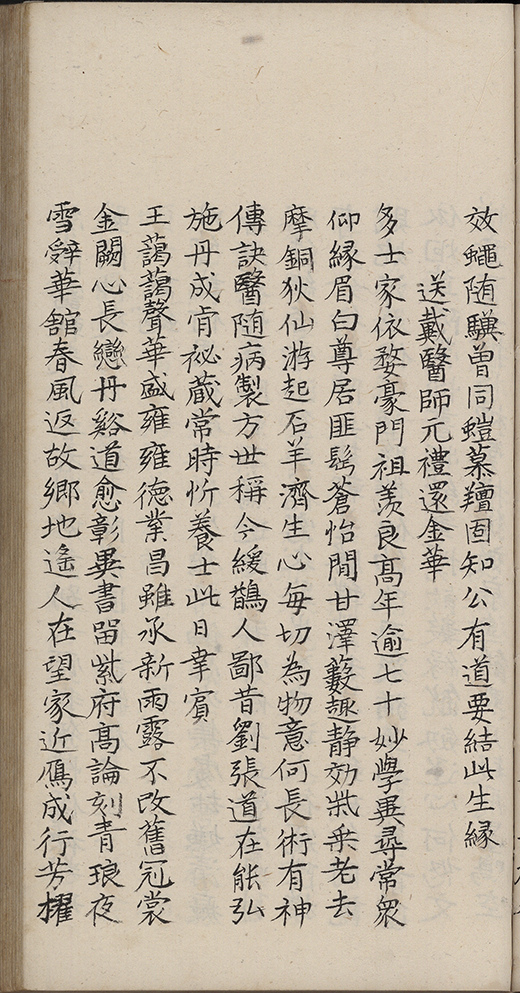 效蠅随驥曾同螘慕羶固知公有道要結此生緣
送戴醫師元禮還金華
多士家依婺豪門祖羨良髙年逾七十妙學異尋常衆
仰緣眉白尊居匪髩蒼怡閒甘澤藪趣静効柴桑老去
摩銅狄仙游起石羊濟生心每切為物意何長術有神
傳訣醫随病製方世稱今緩鵲人鄙昔劉張道在能弘
施丹成肯祕蔵常時忻養士此日幸賓
王藹藹聲華盛雍雍徳業昌雖承新雨露不改舊冠裳
金闕心長戀丹谿道愈彰異書留紫府髙論刻青琅夜
雪辤華舘春風返故鄉地遙人在望家近鴈成行芳櫂